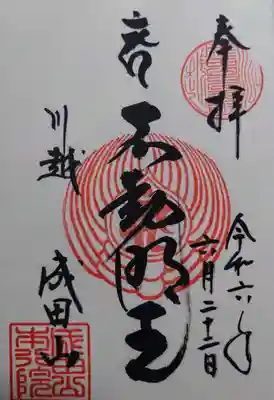 奉拝
令和六年
六月二十二日
不動明王
川越
成田山